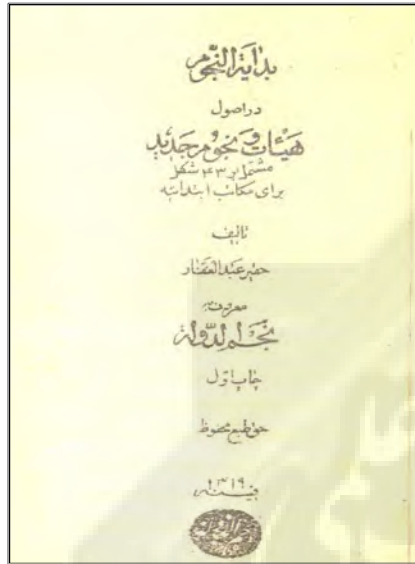 بدایة النجوم
در اصول
هیئات و نجوم جدید
مشتمل بر ۴۳ شکل
برای مکاتب ابتدائیه
تألیف
حقیر عبدالغفار
معروف به
نجم الدوله
چاپ اول
حق طبع محفوظ
۱۳۱۹